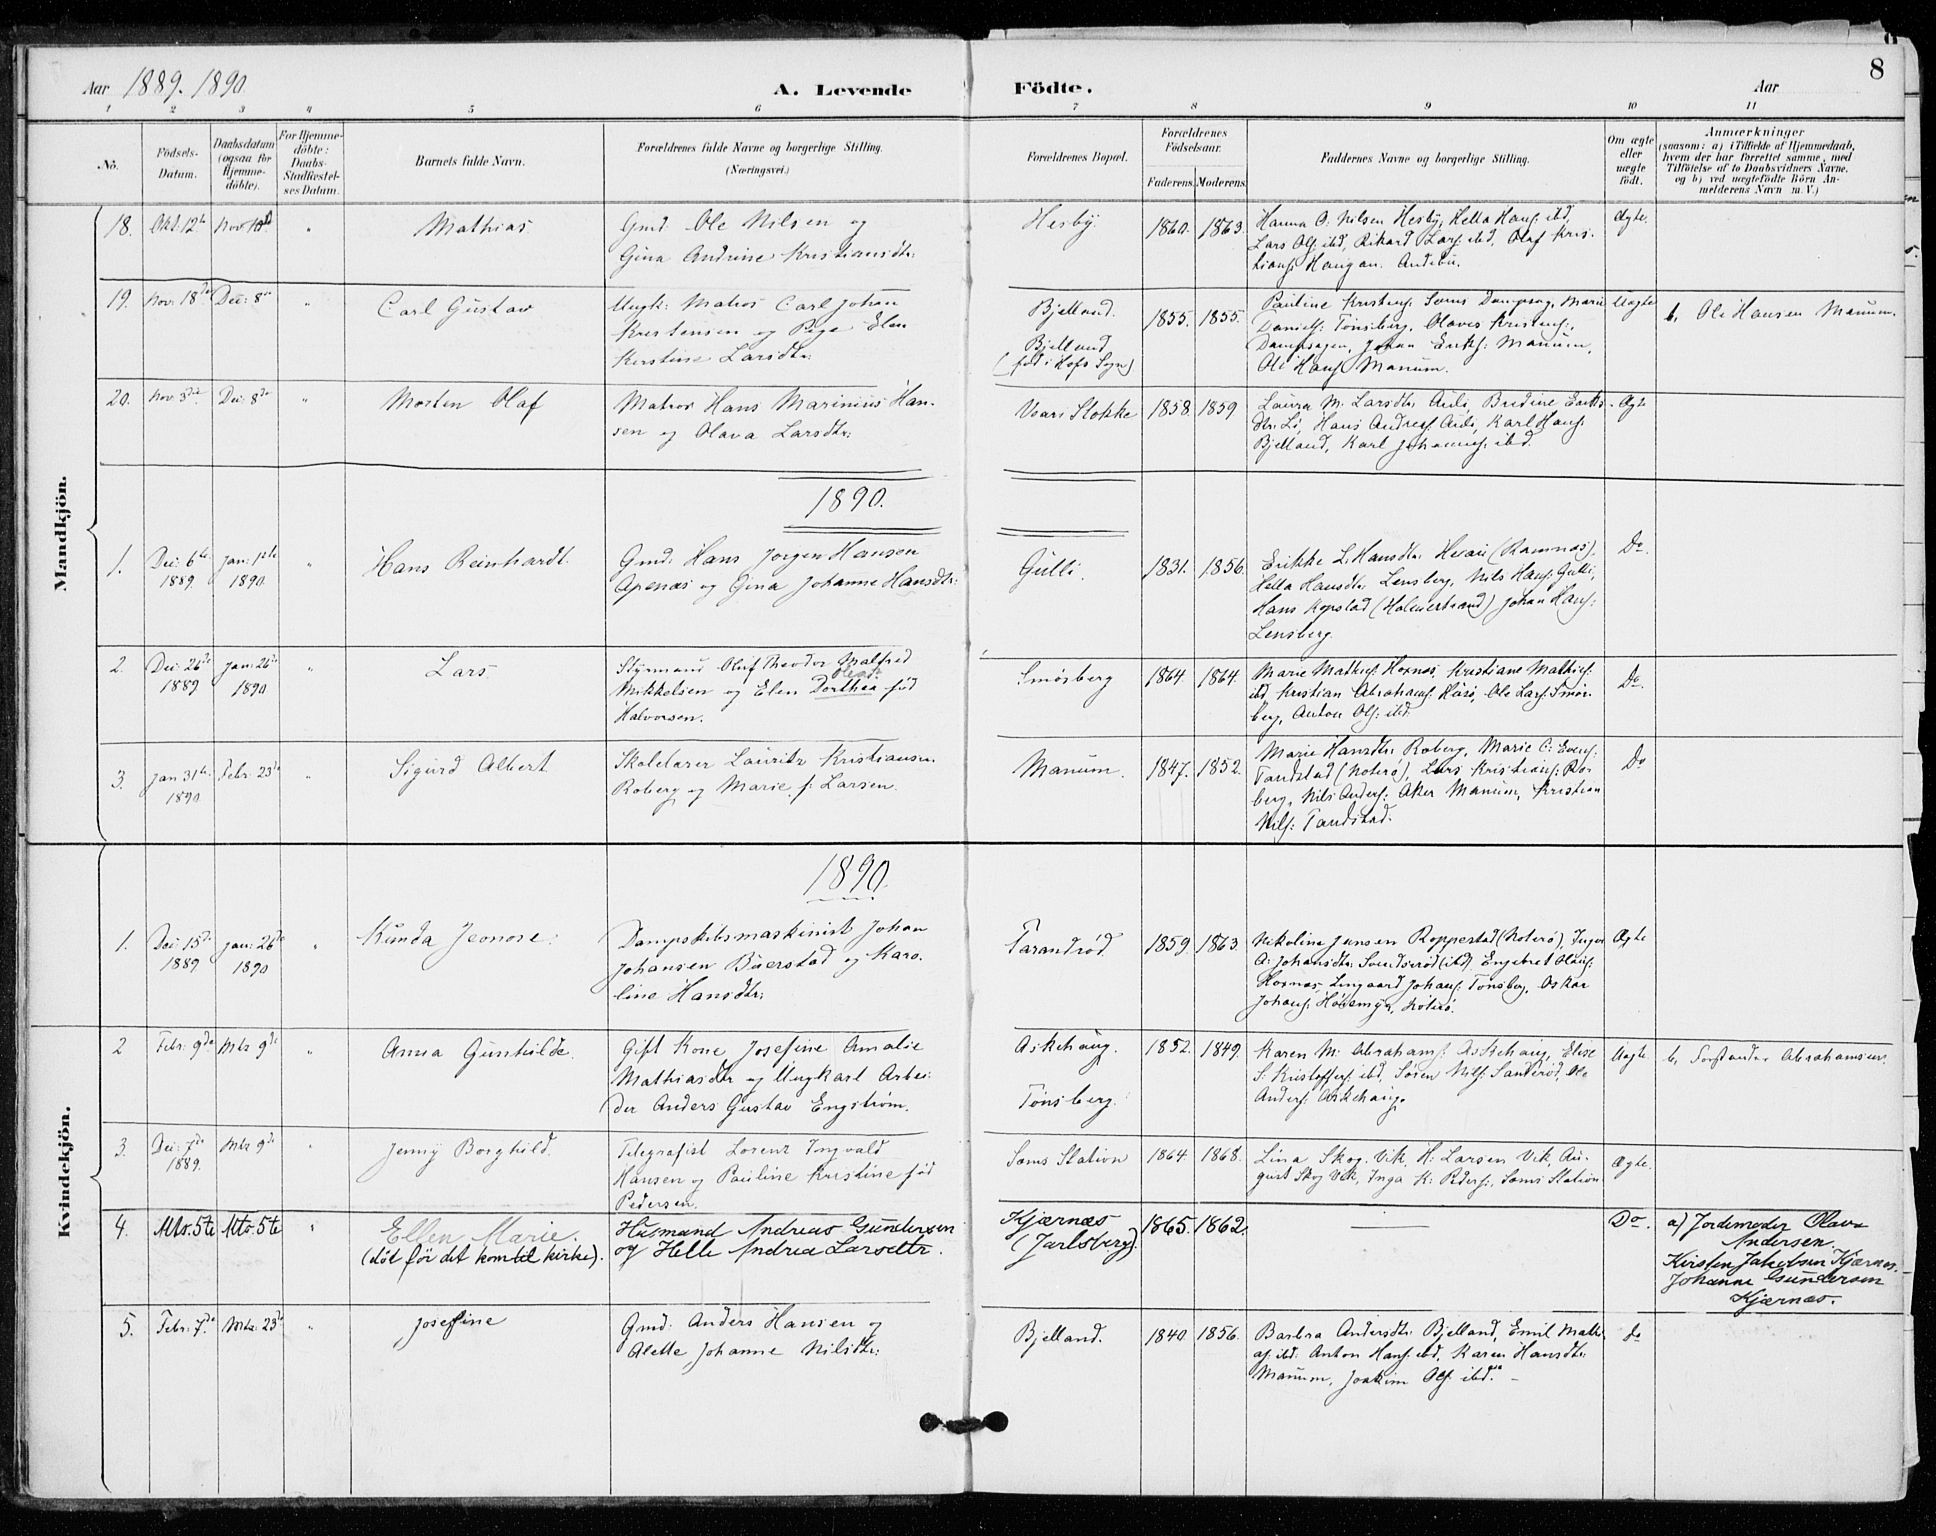 8
Aar 1889. 1890 A. Levende Födte. Aar
1 2 3 4 5 6 7 8 9 10 11
No. Födsels-Datum. Daabsdatum (ogsaa for Hjemme-döbte). For Hjemme-döbte: Daabs-Stadfæstel-ses Datum. Barnets fulde Navn. Forældrenes fulde Navne og borgerlige Stilling. (Næringsvei.) Forældrenes Bopæl. Forældrenes Födselsaar. Faderens. Moderens. Faddernes Navne og borgerlige Stilling. Om ægte eller uægte födt. Anmærkninger
(saasom: a) i Tilfælde af Hjemmedaab,
hvem der har forrettet samme, med
Tilföielse af to Daabsvidners Navne,
og b) ved uægtefödte Börn An-
melderens Navn m. V.)
Mandkjön.
18. Okt: 12te Nov 10de " Mathias Gmd. Ole Nilsen og
Gina Andrine Kristiansdtr:
Hesby. 1860. 1863. Hanna O. Nilsen Hesby, Hella Hans: ibd,
Lars Ols: ibd, Rikard Lars: ibd, Olaf Kris-
tians: Haugan. Andebu.
Ægte.
19. Nov: 18de Dec: 8de " Carl Gustav Ungk: Matros Carl Johan
Kristensen og Pige Elen
Kirstine Larsdtr:
Bjelland.
Bjelland
(föd i Hofs Sogn)
1855. 1855. Pauline Kristens: Sems Dampsag, Marie
Daniels: Tönsberg, Olaves Kristens:,
Dampsagen, Johan Eriks: Manum,
Ole Hans: Manum.
Uægte b, Ole Hansen Manum.
20. Nov: 3die Dec: 8de " Morten Olaf Matros Hans Marinius Han-
sen og Olava Larsdtr:
Vear Stokke 1858. 1859 Laura M. Larsdtr: Auli, Bredine Eriks-
dtr: Lö, Hans Andreas: Auli, Karl Hans:
Bjelland, Karl Johannes: ibd.
Ægte
1890.
1. Dec: 6te
1889 Jan: 1ste
1890 " Hans Reinhardt. Gmd: Hans Jorgen Hansen
Apenæs og Gina Johanne Hansdtr:
Gulli. 1831. 1856. Erikke L. Hansdtr: Hvaie (Ramnæs),
Hella Hansdtr: Lensberg, Nils Hans: Gulli,
Hans Kopstad (Holmestrand) Johan Hans:
Lensberg.
Do
2. Dec: 26de
1889 Jan: 26de
1890 " Lars Styrmand Oluf Theodor Malfred
Mikkelsen og Elen Dorthea föd
Halvorsen.
Smörberg 1864. 1864. Marie Mathis: Hoxnæs, Kristiane Mathis:
ibd, Kristian Abrahams: Husö, Ole Lars: Smör-
berg, Anton Ols: ibd.
Do.
3. Jan 31te
1890 Febr. 23de " Sigurd Albert Skolelærer Lauritz Kristiansen
Roberg og Marie f. Larsen.
Manum. 1847. 1852. Marie Hansdtr: Roberg, Marie C: Evens:
Tandstad (Noterö), Lars Kristians: Ro-
berg, Nils Anders: Aker Manum, Kristian
Nils: Tandstad.
Do
Kvindekjön.
1890.
1. Dec: 15de
1889 Jan: 26de
1890 " Kunda Jeonore: Dampskibsmaskinist Johan
Johansen Buerstad og Karo-
line Hansdtr:
Tarandröd 1859. 1863. Nikoline Jensen Roppestad (Noterö), Inger
A. Johansdtr: Svendseröd (ibd), Engebret Olaus:
Hoxnæs, Lingaard Johans: Tönsbrg, Oskar
Johans: Höiemyr, Nöterö.
Ægte
2 Febr: 9de Mts 9de " Anna Gunhilde. Gift Kone Josefine Amalie
Mathiasdtr og Ungkarl Arbei-
der Anders Gustav Engström.
Askehaug.
Tönsberg.
1852. 1849. Karen M. Abrahams: Askehaug, Elise
S. Kristoffers: ibd, Sören Nils: Sanderöd, Ole
Anders: Askehaug.
Uægte. b, Forstander Abrahamsen.
3. Dec: 7de
1889. Mts 9de " Jenny Borghild. Telegrafist Lorentz Ingvald
Hansen og Pauline Kristine föd
Pedersen.
Sems Station 1864. 1868. Lina Skog. Vik, H: Larsen Vik, Au-
gust Skog Vik, Inga K: Peders:, Sems Station
Ægte.
4. Mts. 5te Mts. 5te " Ellen Marie.
(döt för det kom til kirke).
Husmand Andreas Gundersen
og Helle Andrea Larsdtr.
Kjærnæs
(Jarlsberg). 1865. 1862. Do. a) Jordemoder Olava
Andersen.
Kirsten Jakobsen Kjærnæs.
Johanne Gundersen
Kjærnæs.
5. Febr: 7de Mts: 23de " Josefine Gmd: Anders Hansen og
Alette Johanne Nilsdtr:
Bjelland. 1840. 1856. Barbra Andersdtr: Bjelland, Emil Mathi-
as: ibd: Anton Hans: ibd, Karen Hansdtr:
Manum, Joakim Ols: ibd.
do